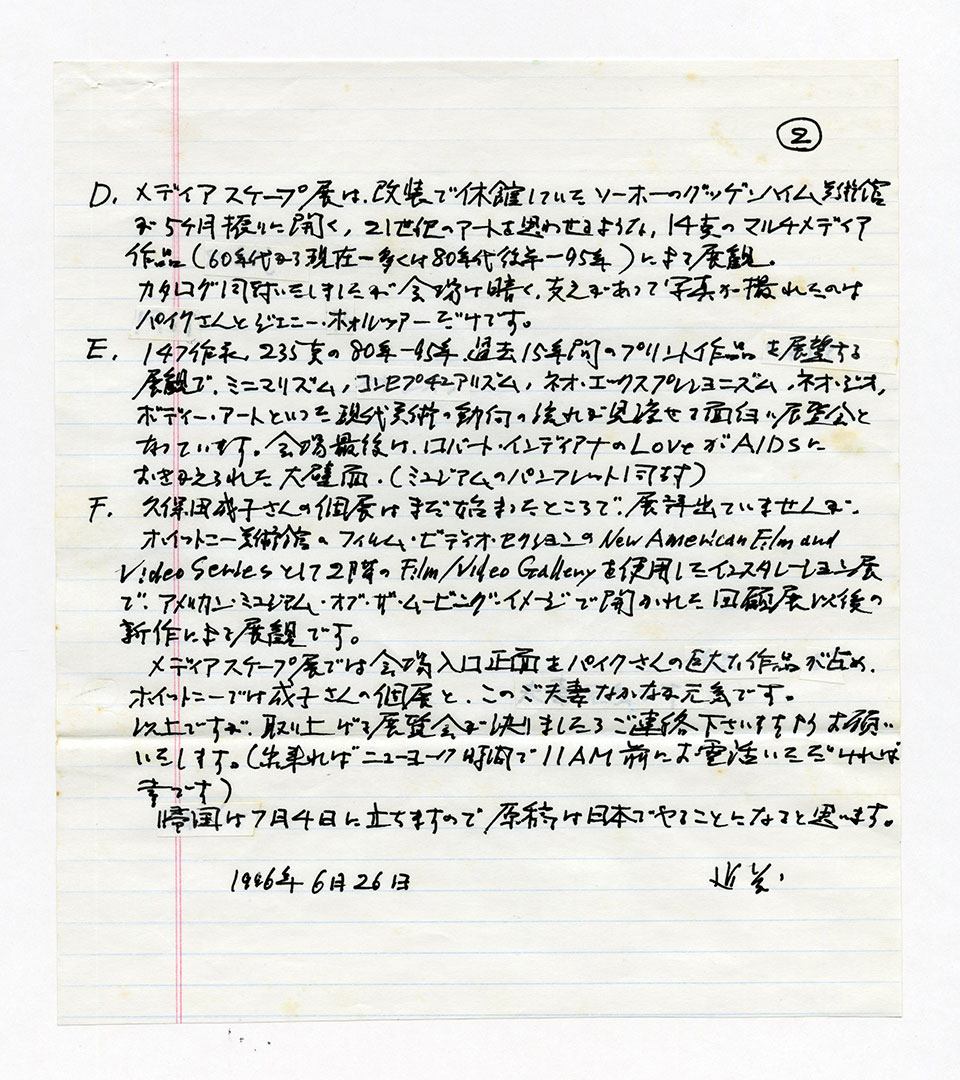 2
D. メディアスケープ展は、改装で休館していたソーホーのグッゲンハイム美術館
が5ヶ月振りに開く、21世紀のアートを思わせるような、14点のマルチメディア
作品(60年代から現在—多くは80年代後半—95年)による展観。
カタログ同封いたしましたが会場は暗く、支えがあって写真が撮れたのは
パイクさんとジェニー・ホルツァーだけです。
E. 147作家、235点の80年—95年、過去15年間のプリント作品を展望する
展観で、ミニマリズム、コンセプチュアリズム、ネオ・エックスプレショニズム、ネオ・ジオ、
ボディー・アートといった現代美術の動向の流れが見渡せて面白い展覧会と
なっています。会場最後は、ロバート・インディアナのLoveがAIDSに
おきかえられた大壁面。(ミュジアムのパンフレット同封)
F. 久保田成子さんの個展はまだ始まったところで、展評出ていませんが、
ホイットニー美術館のフィルム・ビディオ・セクションのNew American Film and
Video Seriesとして2階のFilm/Video Galleryを使用したインスタレーション展
で、アメリカン・ミュジアム・オブ・ザ・ムービング・イメージで開かれた回顧展以後の
新作による展観です。
メディアスケープ展では会場入口正面をパイクさんの巨大な作品が占め、
ホイットニーでは成子さんの個展と、このご夫妻なかなか元気です。
以上ですが、取り上げる展覧会が決りましたらご連絡下さいますようお願い
いたします。(出来ればニューヨーク時間で11AM前にお電話いただければ
幸です)
帰国は7月4日に立ちますので原稿は日本でやることになると思います。
1996年6月26日